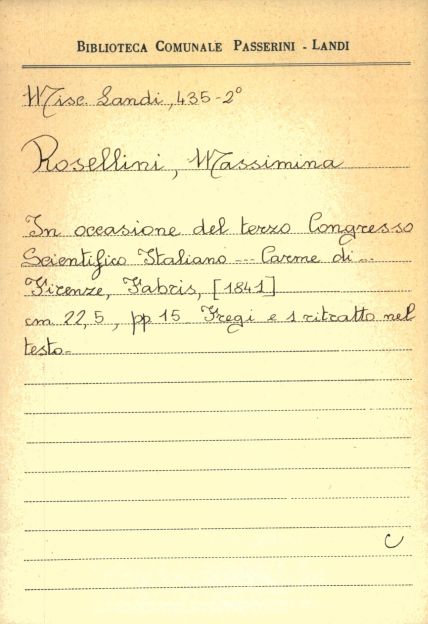 BIBLIOTECA COMUNALE PASSERINI - LANDI
Misc. Landi, 435-2°
Rosellini, Massimina
In occasione del terzo Congresso
Scientifico Italiano --- Carme di...
Firenze, Fabris, [1841]
cm 22,5, pp 15 Fregi e 1 ritratto nel
testo.
C